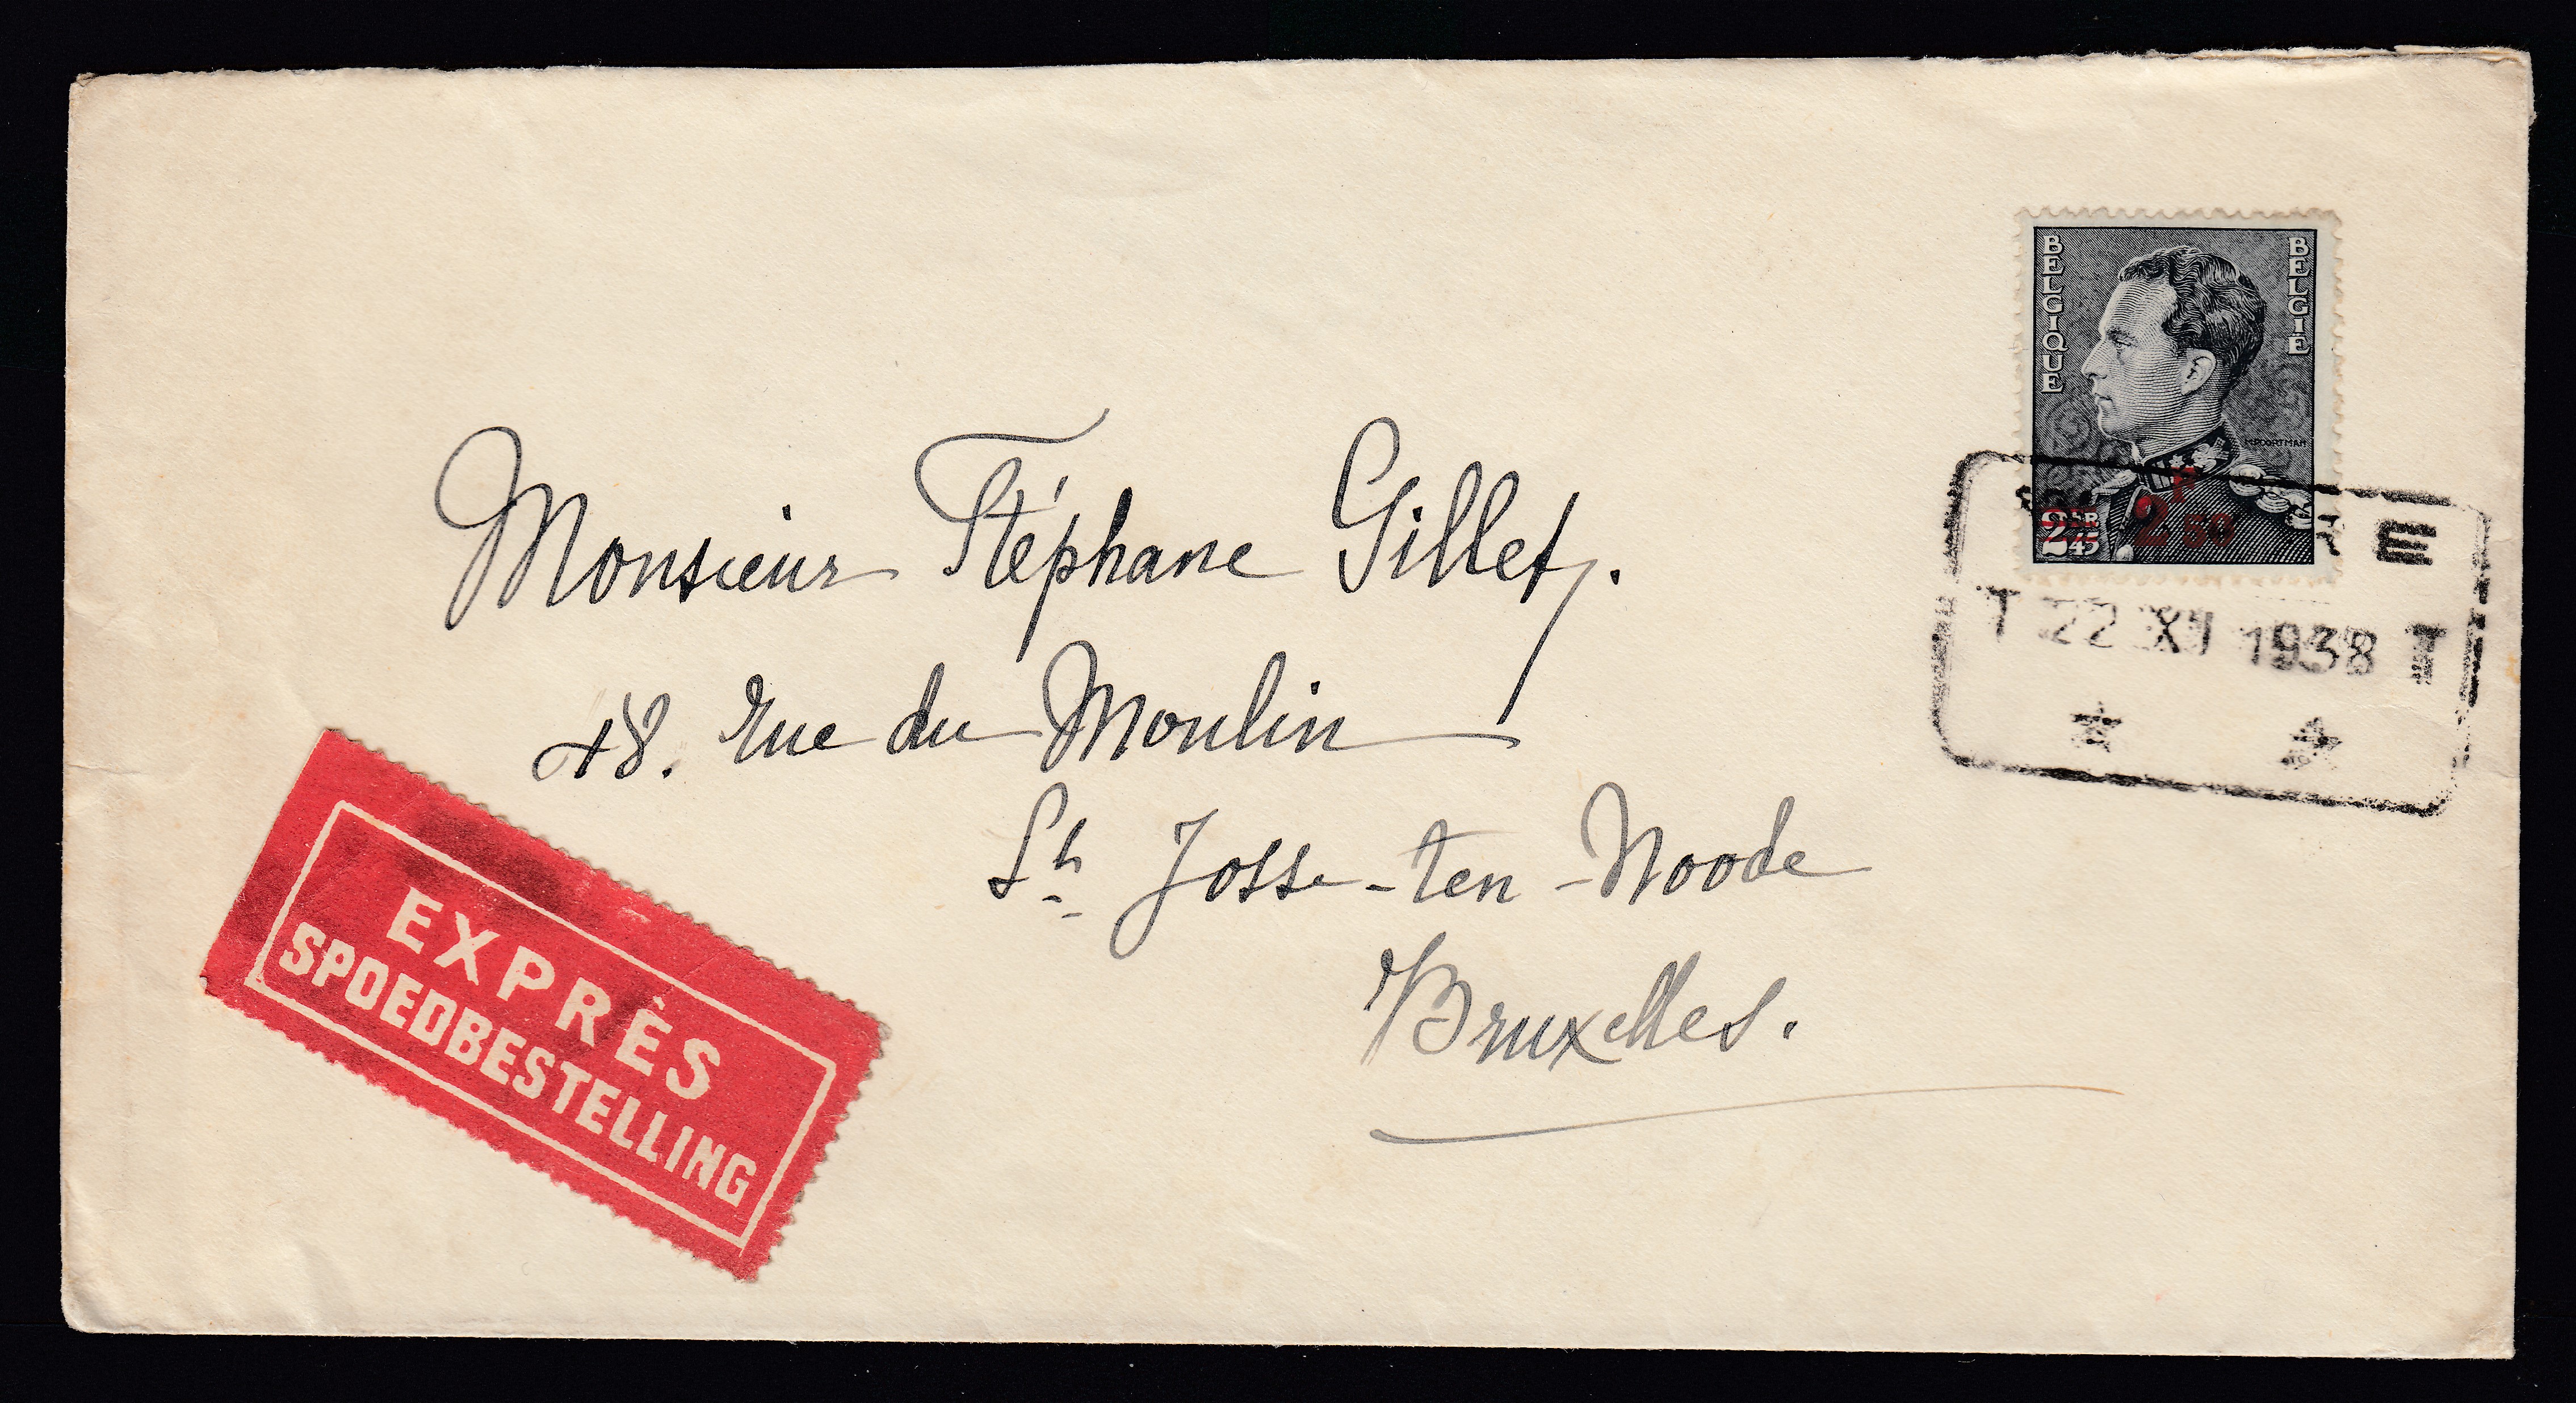 BELGIQUE
BELGIË
M.POORTMAN
2FR 45
2F 50
RE
T 22 XI 1938 T
Monsieur Stéphane Gillet.
48. rue du Moulin
St Josse-ten-Noode
Bruxelles.
EXPRÈS
SPOEDBESTELLING